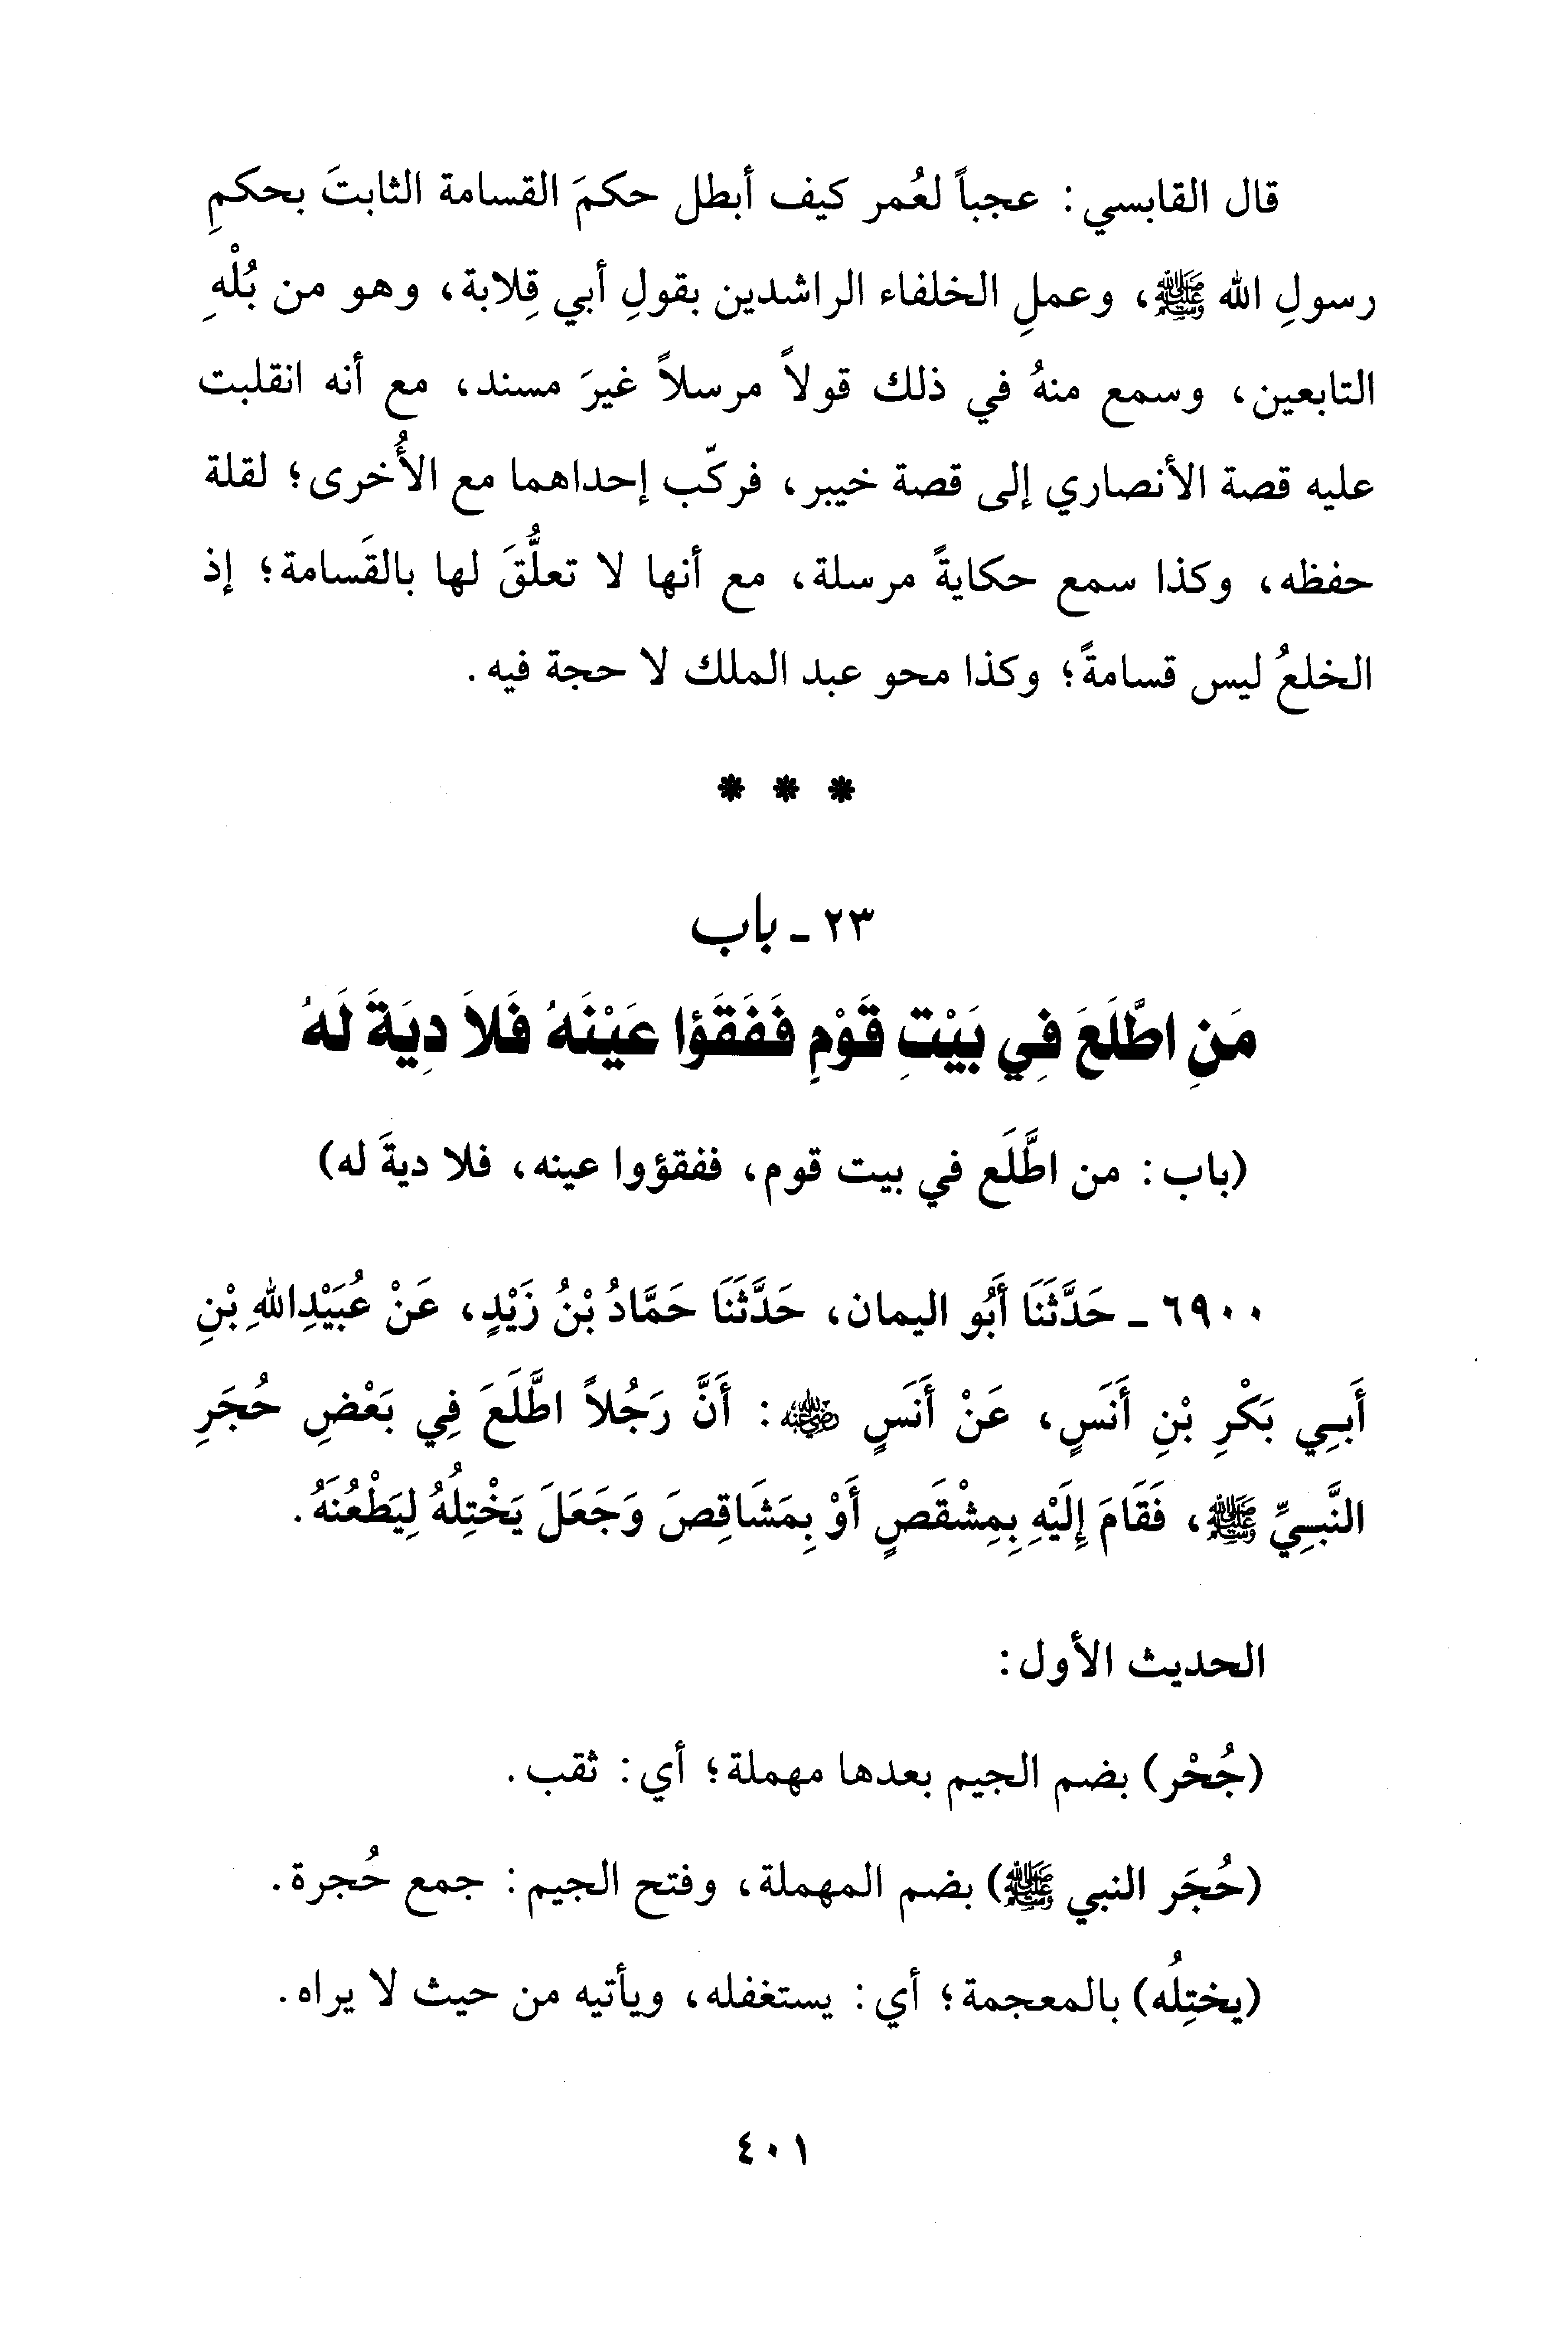 قال القابسي: عجباً لعُمر كيف أبطل حكمَ القسامة الثابتَ بحكمِ
رسولِ الله ﷺ، وعملِ الخلفاء الراشدين بقولِ أبي قِلابة، وهو من بُلْهِ
التابعين، وسمع منهُ في ذلك قولاً مرسلاً غيرَ مسند، مع أنه انقلبت
عليه قصة الأنصاري إلى قصة خيبر، فركّب إحداهما مع الأُخرى؛ لقلة
حفظه، وكذا سمع حكايةً مرسلة، مع أنها لا تعلُّقَ لها بالقَسامة؛ إذ
الخلعُ ليس قسامةً؛ وكذا محو عبد الملك لا حجة فيه.
* * *
٢٣ - باب
مَنِ اطَّلَعَ فِي بَيْتِ قَوْمٍ فَفَقَؤا عَيْنَهُ فَلاَ دِيَةَ لَهُ
(باب: من اطَّلَع في بيت قوم، ففقؤوا عينه، فلا ديةَ له)
٦٩٠٠ - حَدَّثَنَا أَبُو اليمان، حَدَّثَنَا حَمَّادُ بْنُ زَيْدٍ، عَنْ عُبَيْدِاللهِ بْنِ
أَبِي بَكْرِ بْنِ أَنَسٍ، عَنْ أَنَسٍ رضي الله عنه: أَنَّ رَجُلاً اطَّلَعَ فِي بَعْضِ حُجَرِ
النَّبِيِّ ﷺ، فَقَامَ إِلَيْهِ بِمِشْقَصٍ أَوْ بِمَشَاقِصَ وَجَعَلَ يَخْتِلُهُ لِيَطْعُنَهُ.
الحديث الأول:
(جُحْر) بضم الجيم بعدها مهملة؛ أي: ثقب.
(حُجَر النبي ﷺ) بضم المهملة، وفتح الجيم: جمع حُجرة.
(يختِلُه) بالمعجمة؛ أي: يستغفله، ويأتيه من حيث لا يراه.
٤٠١